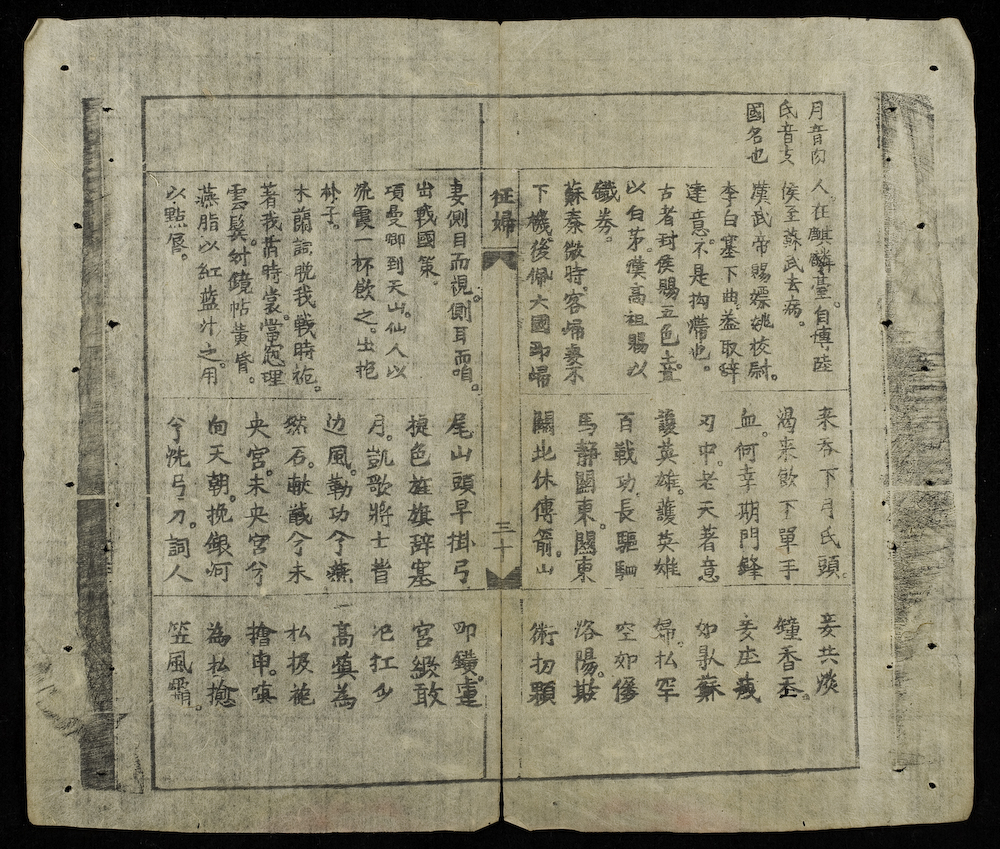 月音肉
氏音支
國名也
人在麒麟臺。自博陸
侯至蘇武去病。
漢武帝賜嫖姚校尉。
李白塞下曲。蓋取辞
達意。不是拘滯也。
古者封侯賜五色土。苴
以白茅。漢高祖賜以
鐵券。
蘇秦微時。客歸妻不
下機。後佩六國印歸
来夯下月氏頭。
渴来飲下單手
血。何幸期門鋒
刃中。老天著意
護英雄。護英雄
百戰功。長驅駟
馬靜關東。關東
關北休傳箭。山
妾共淡
鐘香
妾
如蘇
婦。払罕
空如
洛陽。欺
術扨顆
征婦
三十
妻側目而視。側耳而
出戰國策。
項曼卿到天山。仙人以
流霞一杯飲之。出抱
朴子。
木蘭詞。晚我戰時袍。
著我舊時裳。當窓理
雲鬂。對鏡帖黃昏。
燕脂以紅藍汁之。用
以點唇。
尾山頭早掛弓
捷色旌旗辞塞
月。凱歌將士背
边風。勒功兮燕
然石。献馘兮未
央宮。未央宮兮
向天朝。挽銀河
兮洗弓刀。詞人
印鑽。重
宮緞敢
扛少
高嗔為
払扱
擔申。嗔
為払
笠風霜。